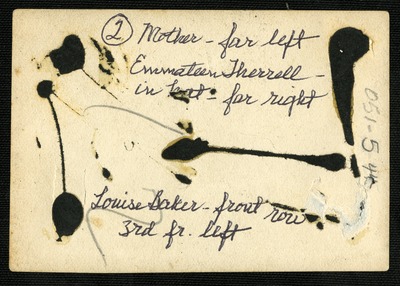 ② Mother - far left
Emmateen Therrell -
in hat - far right
Louise Baker - front row
3rd fr. left